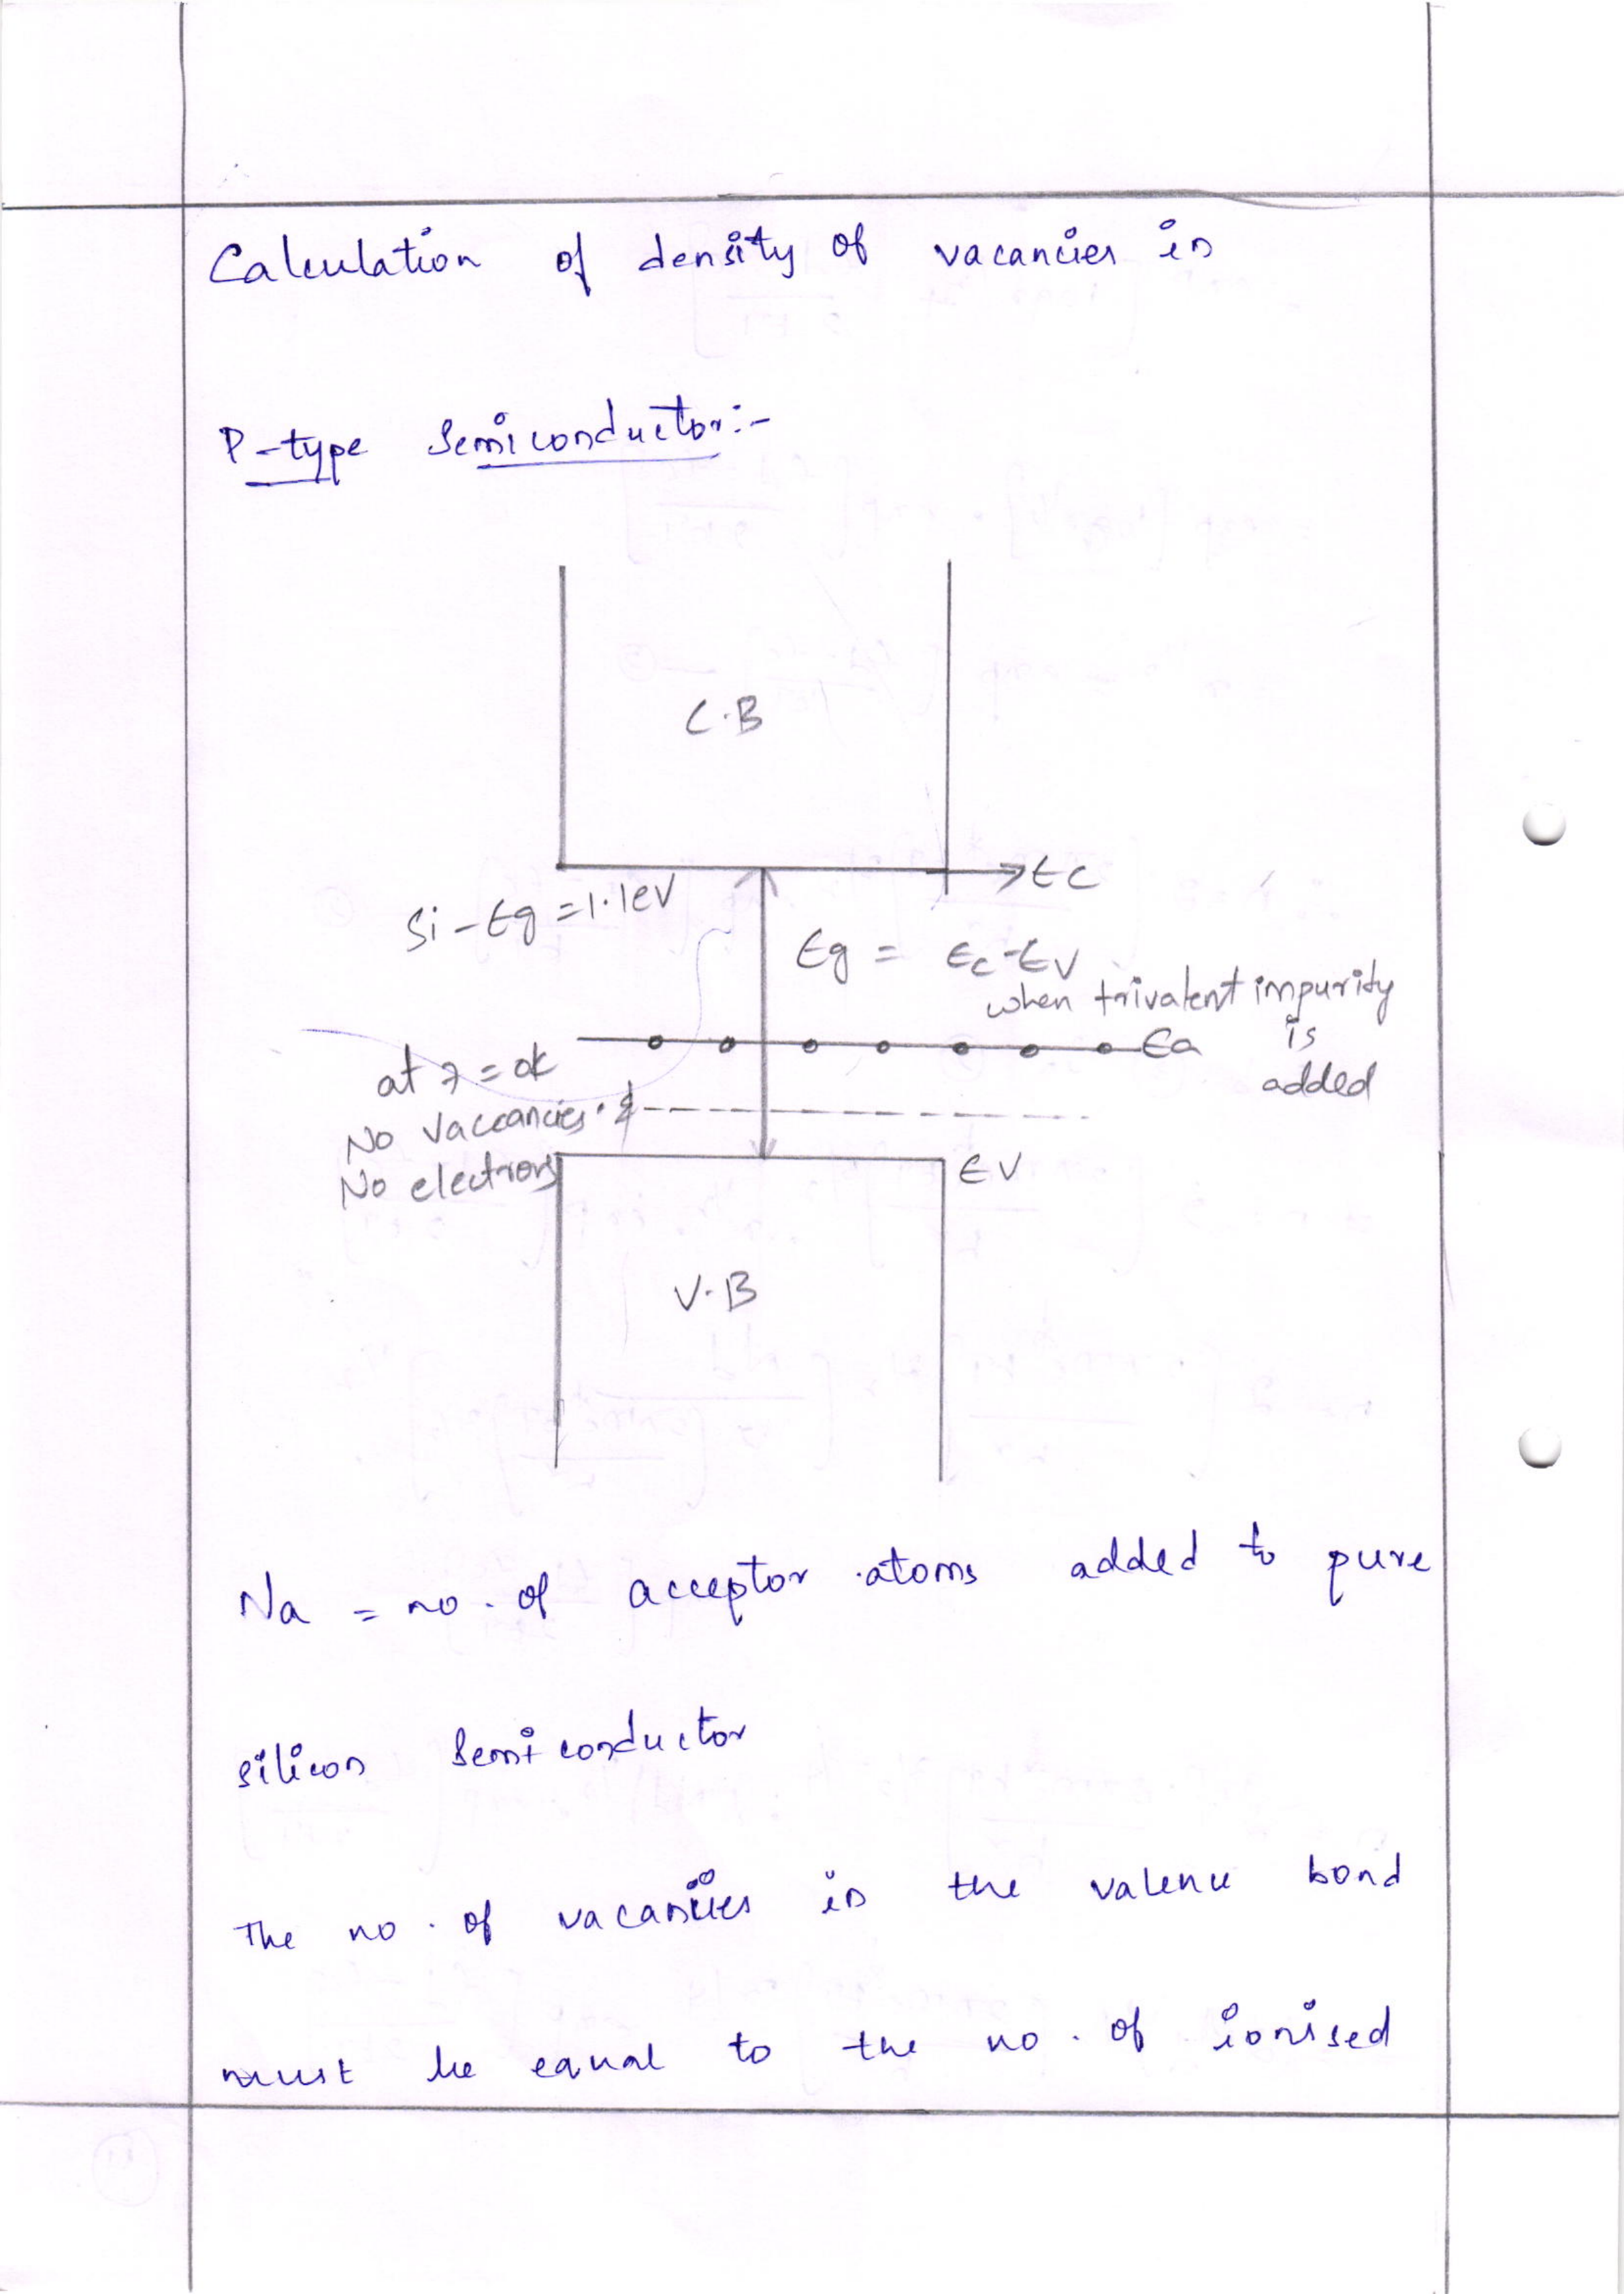 Calculation of density of vacancies in
P-type Semiconductor:-
C.B
Ec
Si-Eg=1.1eV
Eg = Ec-Ev
when trivalent impurity
is
added
Ea
at T=0k
No Vaccancies &
No electrons
EV
V.B
Na = no. of acceptor atoms added to pure
silicon Semiconductor
The no. of vacancies in the valence bond
must be equal to the no. of ionised